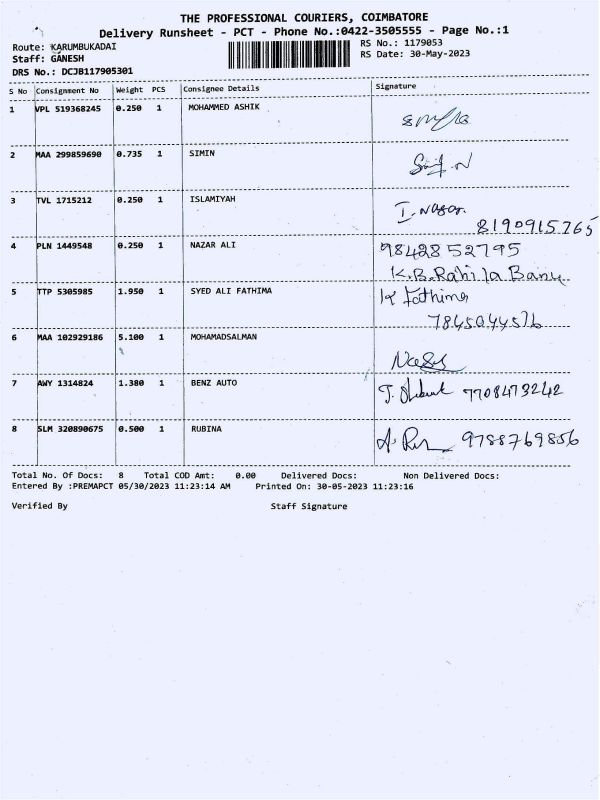 THE PROFESSIONAL COURIERS, COIMBATORE
Delivery Runsheet - PCT - Phone No.:0422-3505555 - Page No.:1
Route: KARUMBUKADAI
RS No.: 1179053
Staff: GANESH
RS Date: 30-May-2023
DRS No.: DCJB117905301
S No Consignment No Weight PCS Consignee Details Signature
1 VPL 519368245 0.250 1 MOHAMMED ASHIK
2 MAA 299859690 0.735 1 SIMIN
3 TVL 1715212 0.250 1 ISLAMIYAH I. Nagar.
8190915765
4 PLN 1449548 0.250 1 NAZAR ALI 9842852795
K.B.Rahila Banu
5 TTP 5305985 1.950 1 SYED ALI FATHIMA K Fathima
7845044576
6 MAA 102929186 5.100 1 MOHAMADSALMAN
7 AWY 1314824 1.380 1 BENZ AUTO 7708473242
8 SLM 320890675 0.500 1 RUBINA 9788769856
Total No. Of Docs: 8 Total COD Amt: 0.00 Delivered Docs: Non Delivered Docs:
Entered By :PREMAPCT 05/30/2023 11:23:14 AM Printed On: 30-05-2023 11:23:16
Verified By Staff Signature